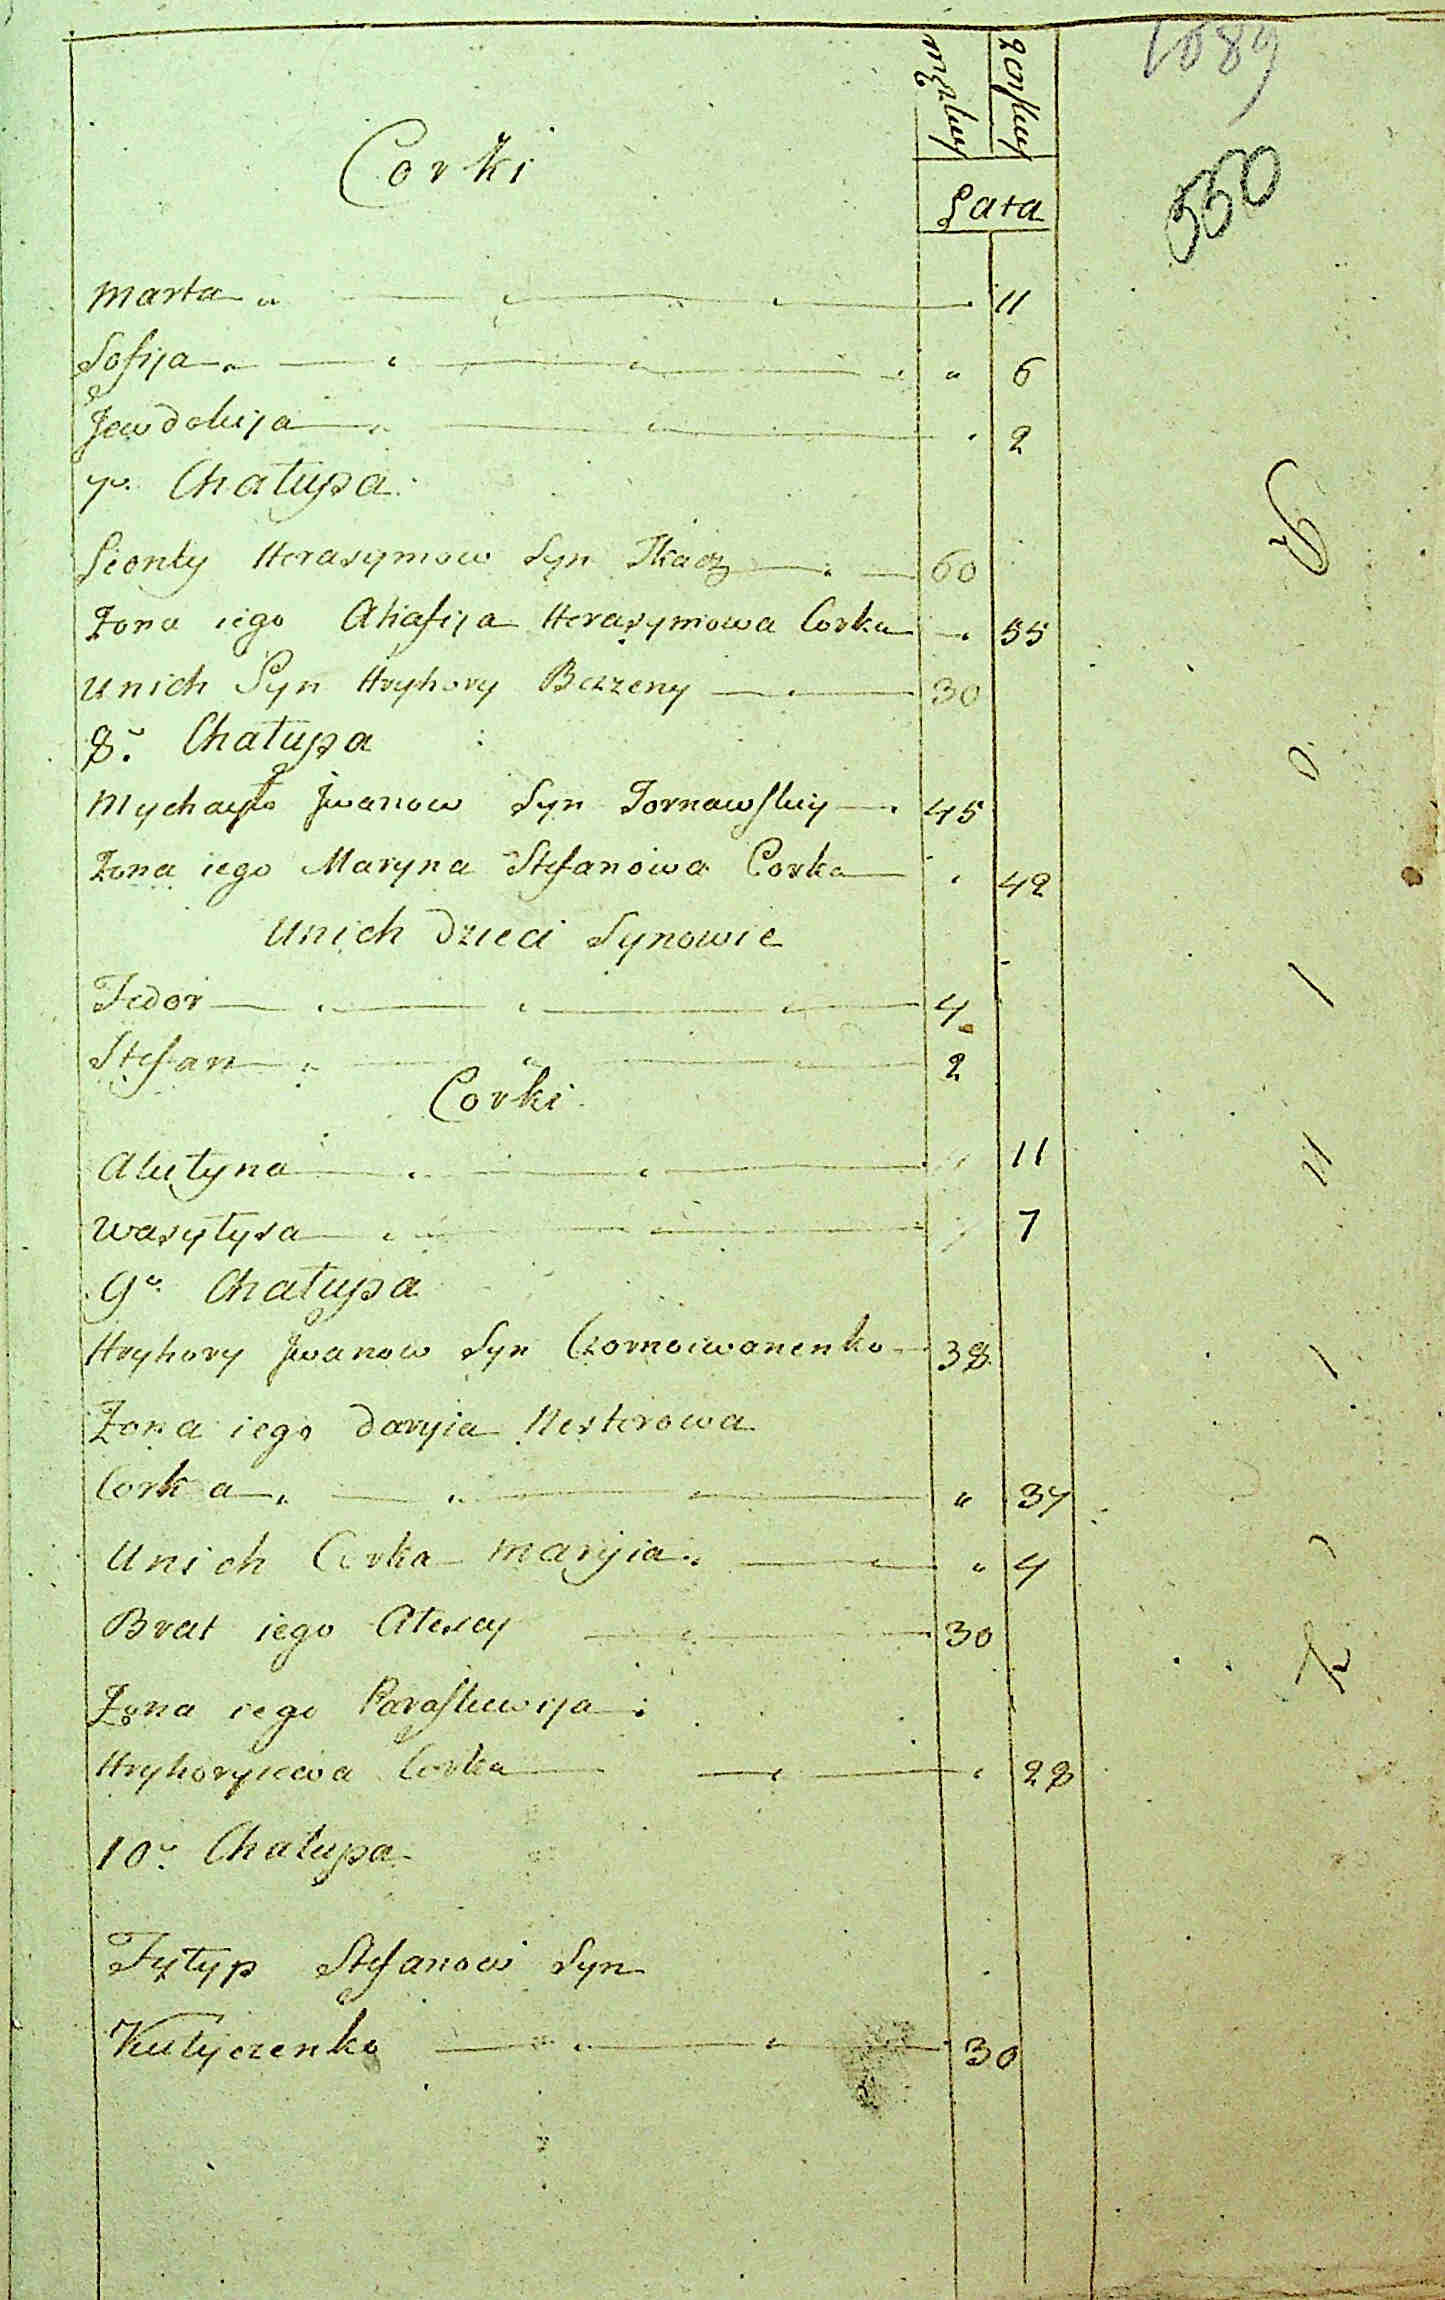 1089
550
męskiey żenskiey
Corki
Lata
Marta 11
Sofija 6
Jewdokija 2
7a. Chałupa
Leonty Herasymow Syn Tkacz 60
Żona iego Ahafija Herasymowa Corka 55
Unich Syn Hryhory Bezzeny 30
8a. Chałupa
Mychayło Jwanow Syn Tornawskiy 45
Żona iego Maryna Stefanowa Corka 42
Unich dzieci Synowie
Fedor 4
Stefan 2
Corki
Akułyna 11
Wasyłysa 7
9a. Chałupa
Hryhory Jwanow Syn Czornoiwanenko 38
Żona iego Daryia Nesterowa
Corka 37
Unich Corka Maryia 4
Brat iego Ałexey 30
Żona iego Paraskewija
Hryhoryiewa Corka 28
10a. Chałupa
Fyłyp Stefanow Syn
Kułyczenko 30